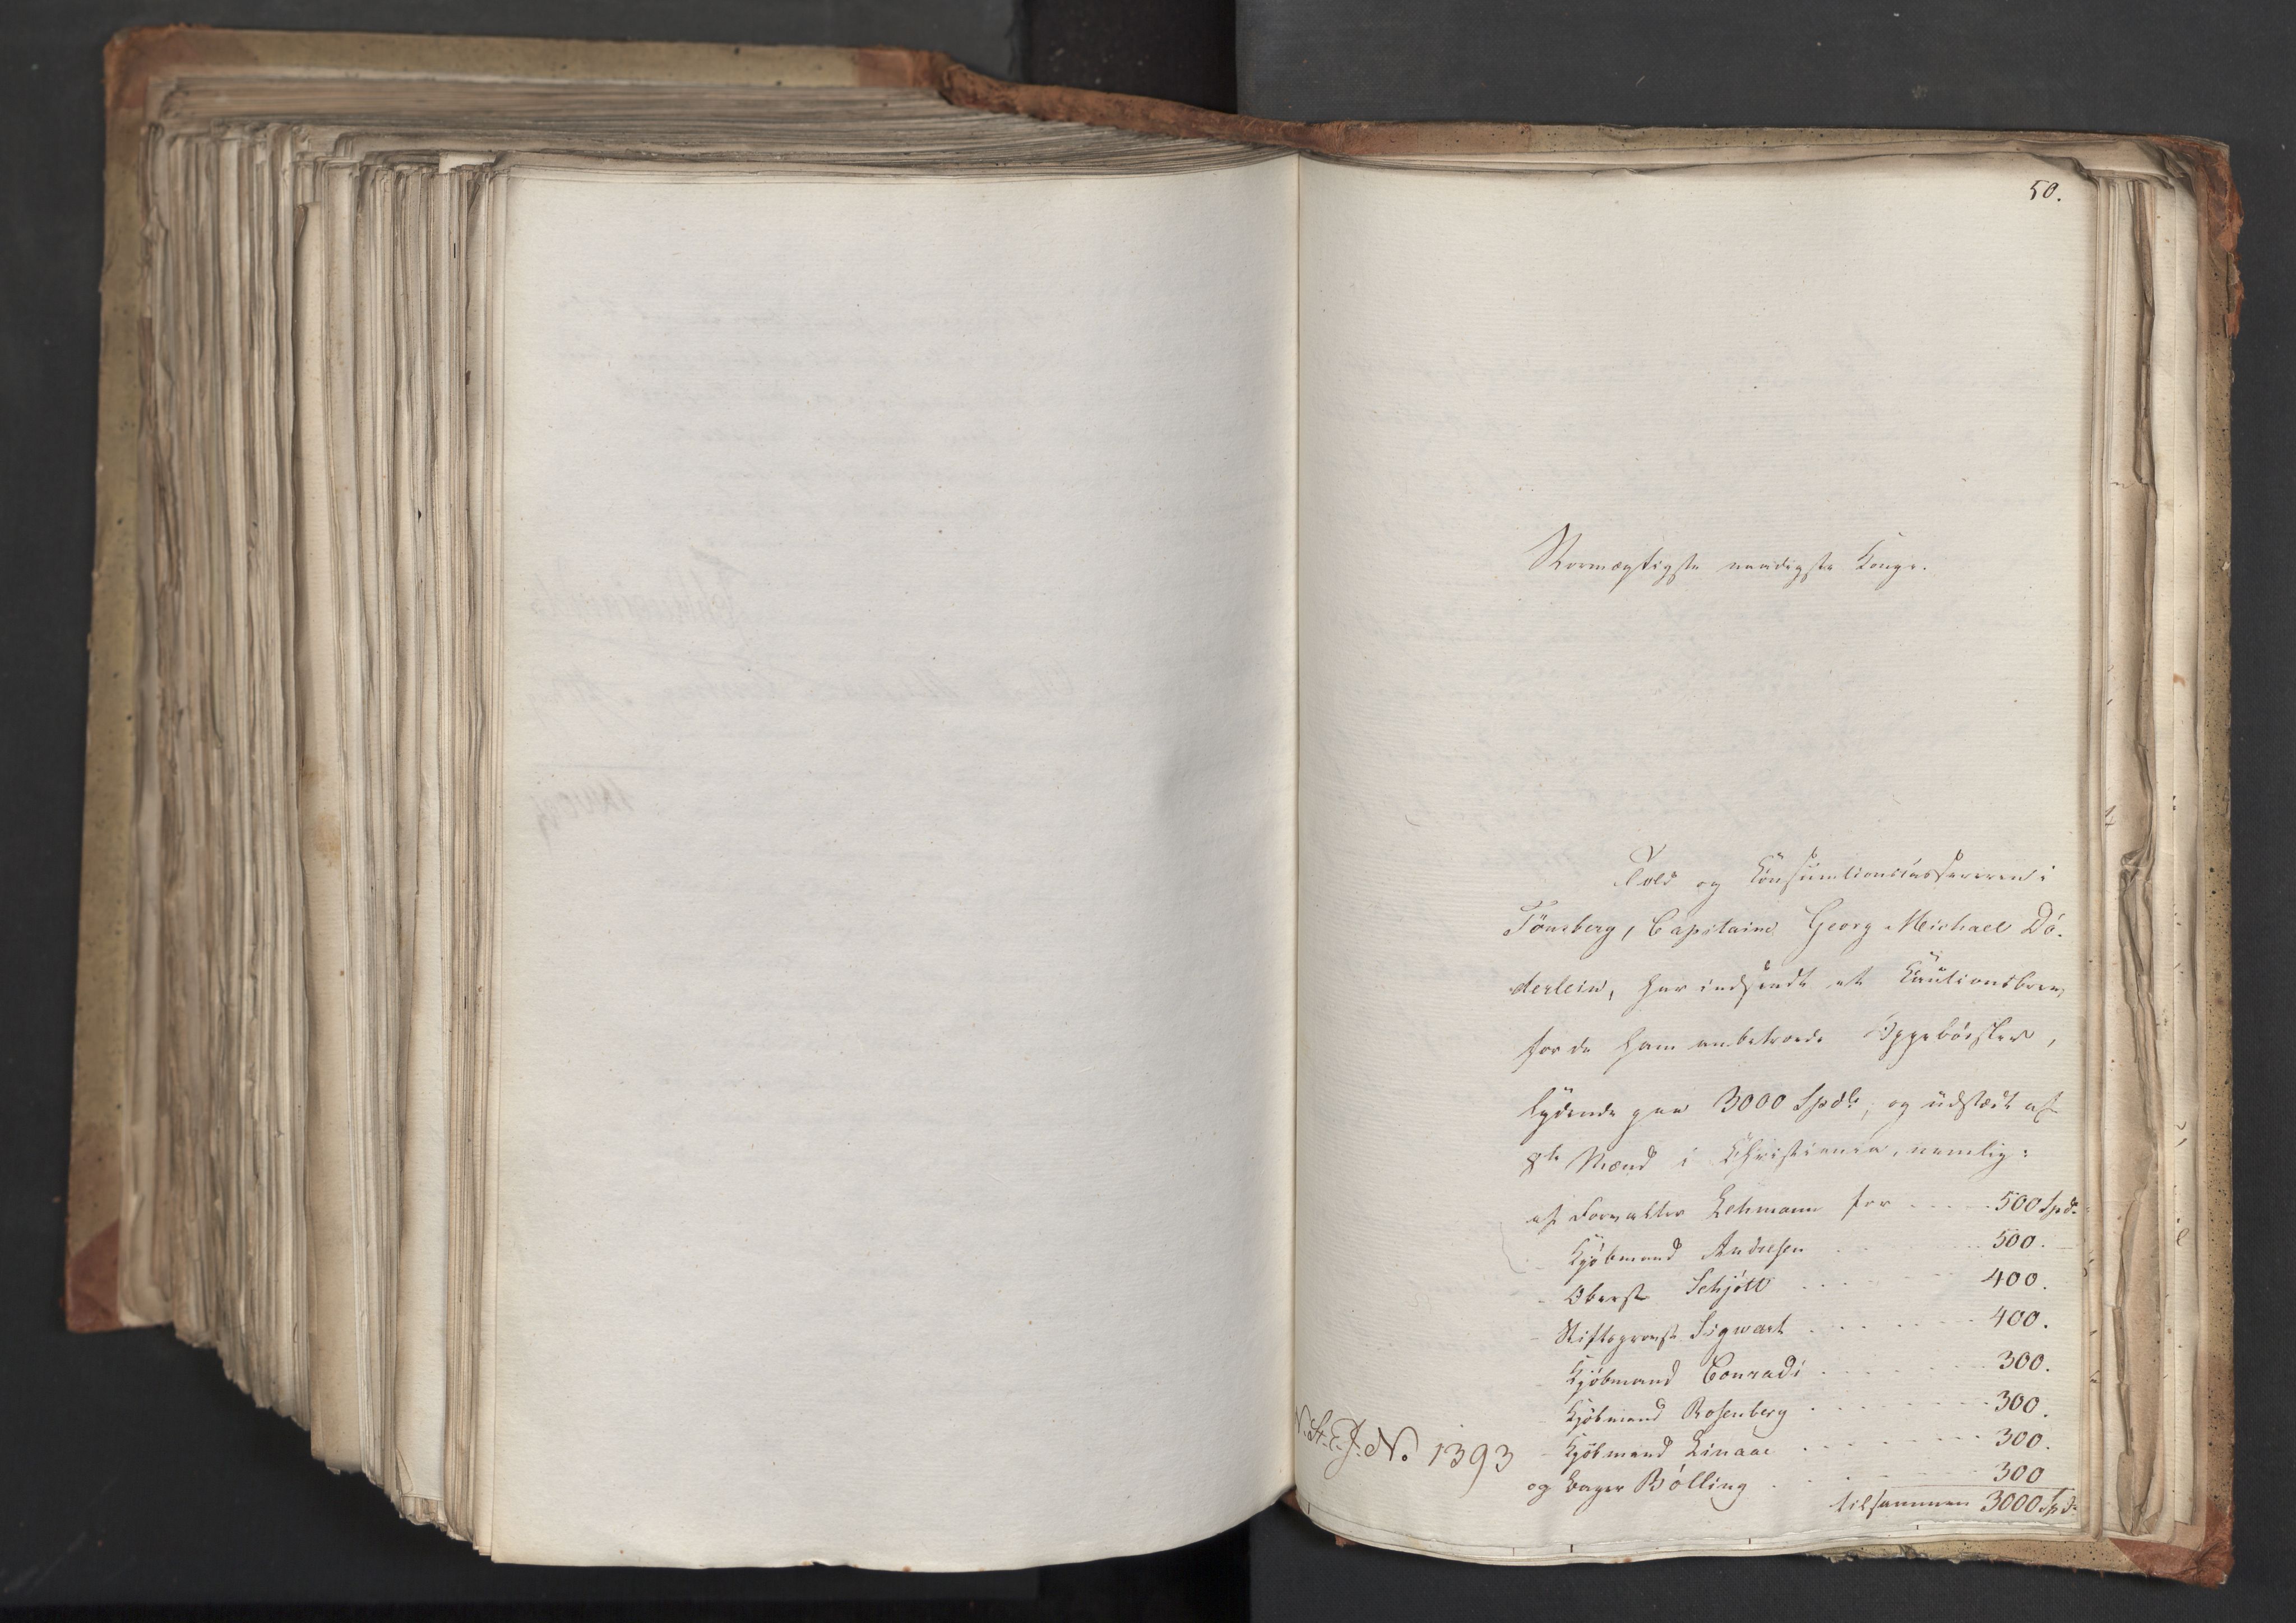 50.
Stormægtigste naadigste Konge.
Told og Konsumtionskassereren i
Tönsberg, Capitaine Georg Michael Dö-
derlein, har indsendt et Kautionsbrev
for de ham anbetroede Oppebörsler,
lydende paa 3000 Spdlr, og udstædt af
8te Mænd i Christiania, nemlig:
af Forvalter Lehmann for . . . . 500 Spd.
- Kjöbmand Andresen . . . 500.
- Oberst Schjött . . . . 400.
- Stiftsprovst Sigwart . . . . . . 400.
- Kjöbmand Conradi . . . . 300.
- Kjöbmand Rosenberg . . . . . 300.
- Kjöbmand Linaae . . . . . 300.
og Bager Bölling . . . . 300
tilsammen 3000 Spd.
N. St. E. J. No. 1393